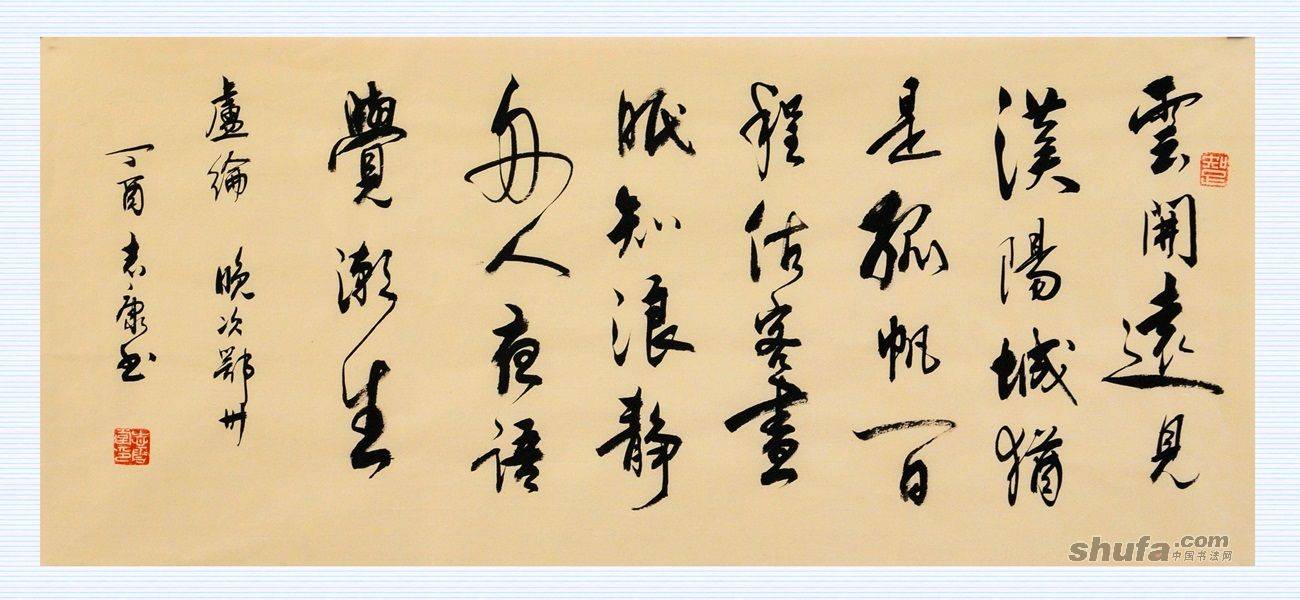 雲開遠見
漢陽城猶
是孤帆一日
程估客晝
眠知浪静
舟人夜語
覺潮生
盧綸 晚次鄂州
丁酉袁康书
shufa.com
中国书法网